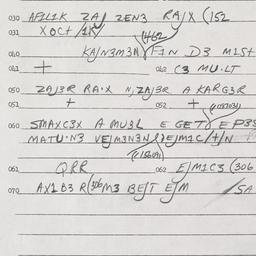 030 AFIL1K ZAJ ZEN3 RAJX (152
031 XOCT/1K/
(462
040 KAJN3M3N FIN D3 MIST
041 + 042 C3 MU·LT
050 ZAJ3R RA·X N, ZAJ3R A KARG3R
051 + 052 +
060 SMAXC3X A MU3L E GET E EP3S
MATU·N3 VEJM3N3N EJM1C/T/N
061 QRR 062 EJM1C3 (306
070 AX1D3 R (306 M3 BEJT EJM /SA